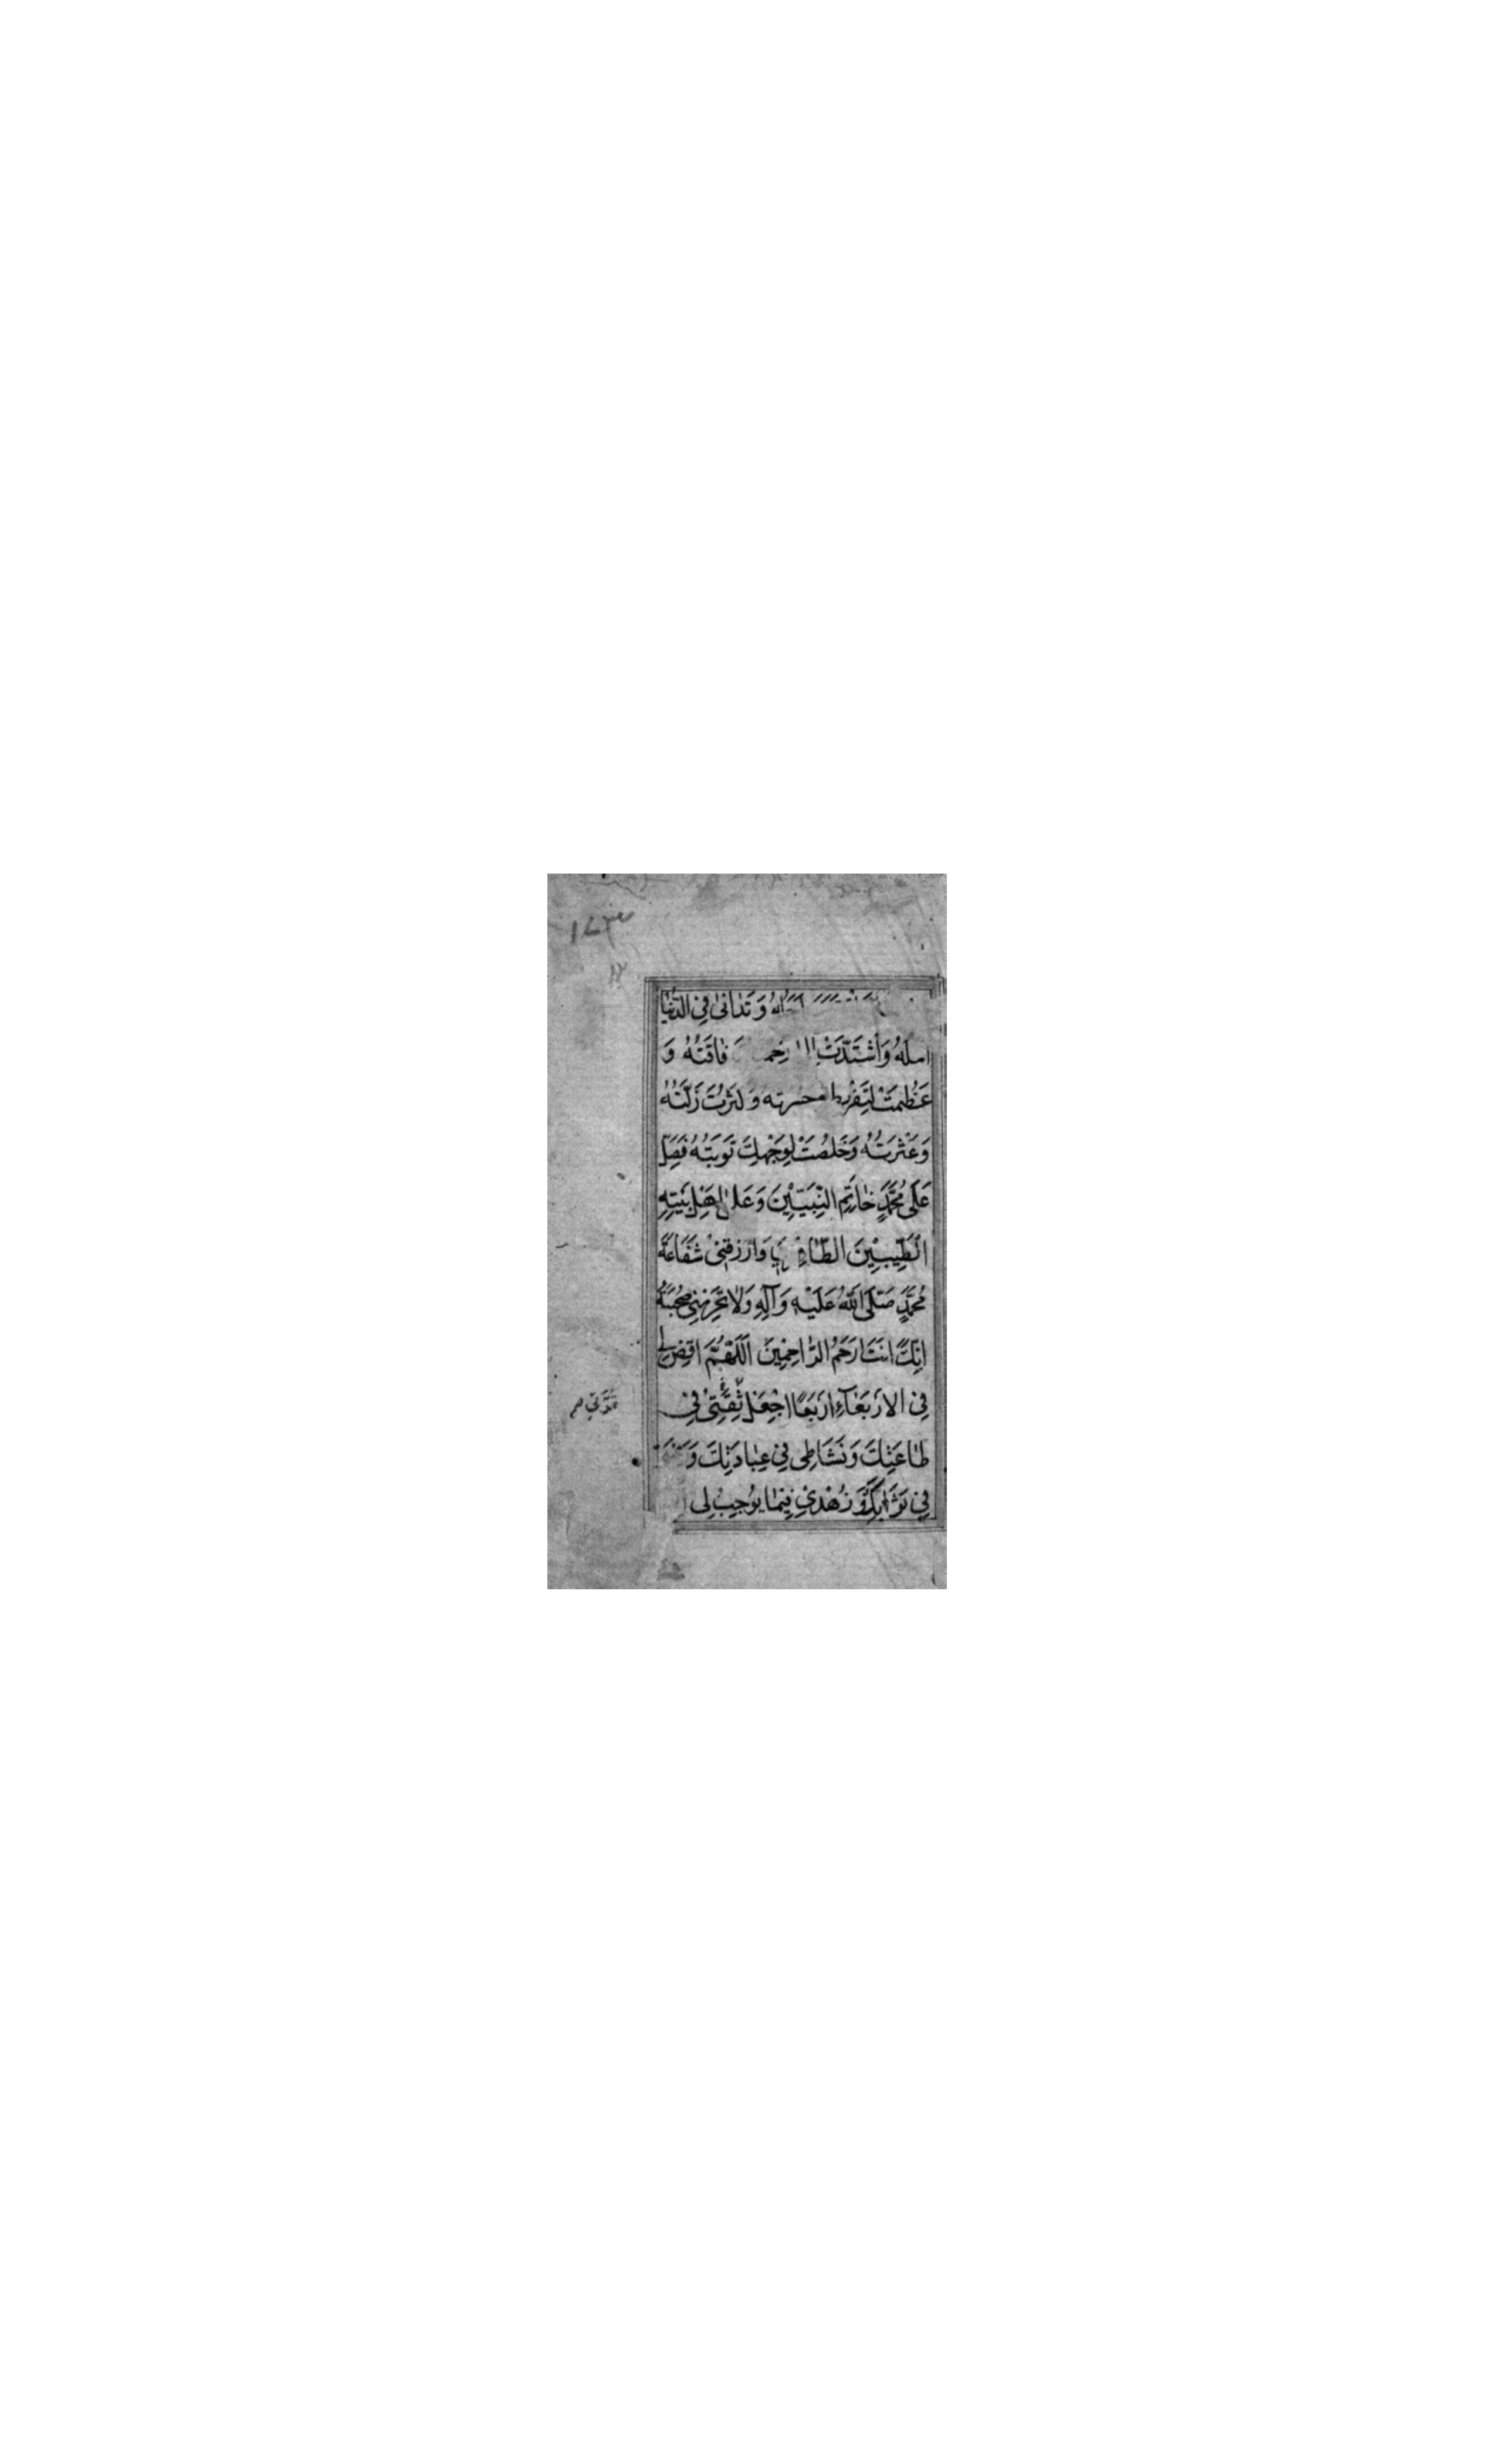 ١٧٣
١٢
وَتَدَانىٰ فِي الدُّنْيٰا
اَمَلُهُ وَاشْتَدَّتْ فٰاقَتُهُ وَ
عَظُمَتْ لِتَفْرِيطِهِ حسرته وَكَثُرَتْ زَلَّتُهُ
وَعَثْرَتُهُ وَخَلُصَتْ لِوَجْهِكَ تَوْبَتُهُ فَصَلِّ
عَلَى مُحَمَّدٍ خٰاتَمِ النَّبِيّيْنَ وَعَلىٰ اَهْلِ بَيْتِهِ
الطَّيِّبِيْنَ وَارْزُقْنِىْ شَفَاعَةَ
مُحَمَّدٍ صَلَّى اللّٰهُ عَلَيْهِ وَآلِهِ وَلاٰ تَحْرِمْنِي صُحْبَتَهُ
اِنَّكَ اَنْتَ اَرْحَمُ الرّٰاحِمِيْنَ اَللّٰهُمَّ اقْضِ لِي
فِي الاَرْبَعَآءِ اَرْبَعًا اجْعَلْ ثِقَتِىْ فِي
قُوَّتِي
طٰاعَتِكَ وَنَشَاطِى فِي عِبٰادَتِكَ
فِي ثَوَابِكَ وَزُهْدِيْ فِيْمٰا يُوْجِبُ لِى